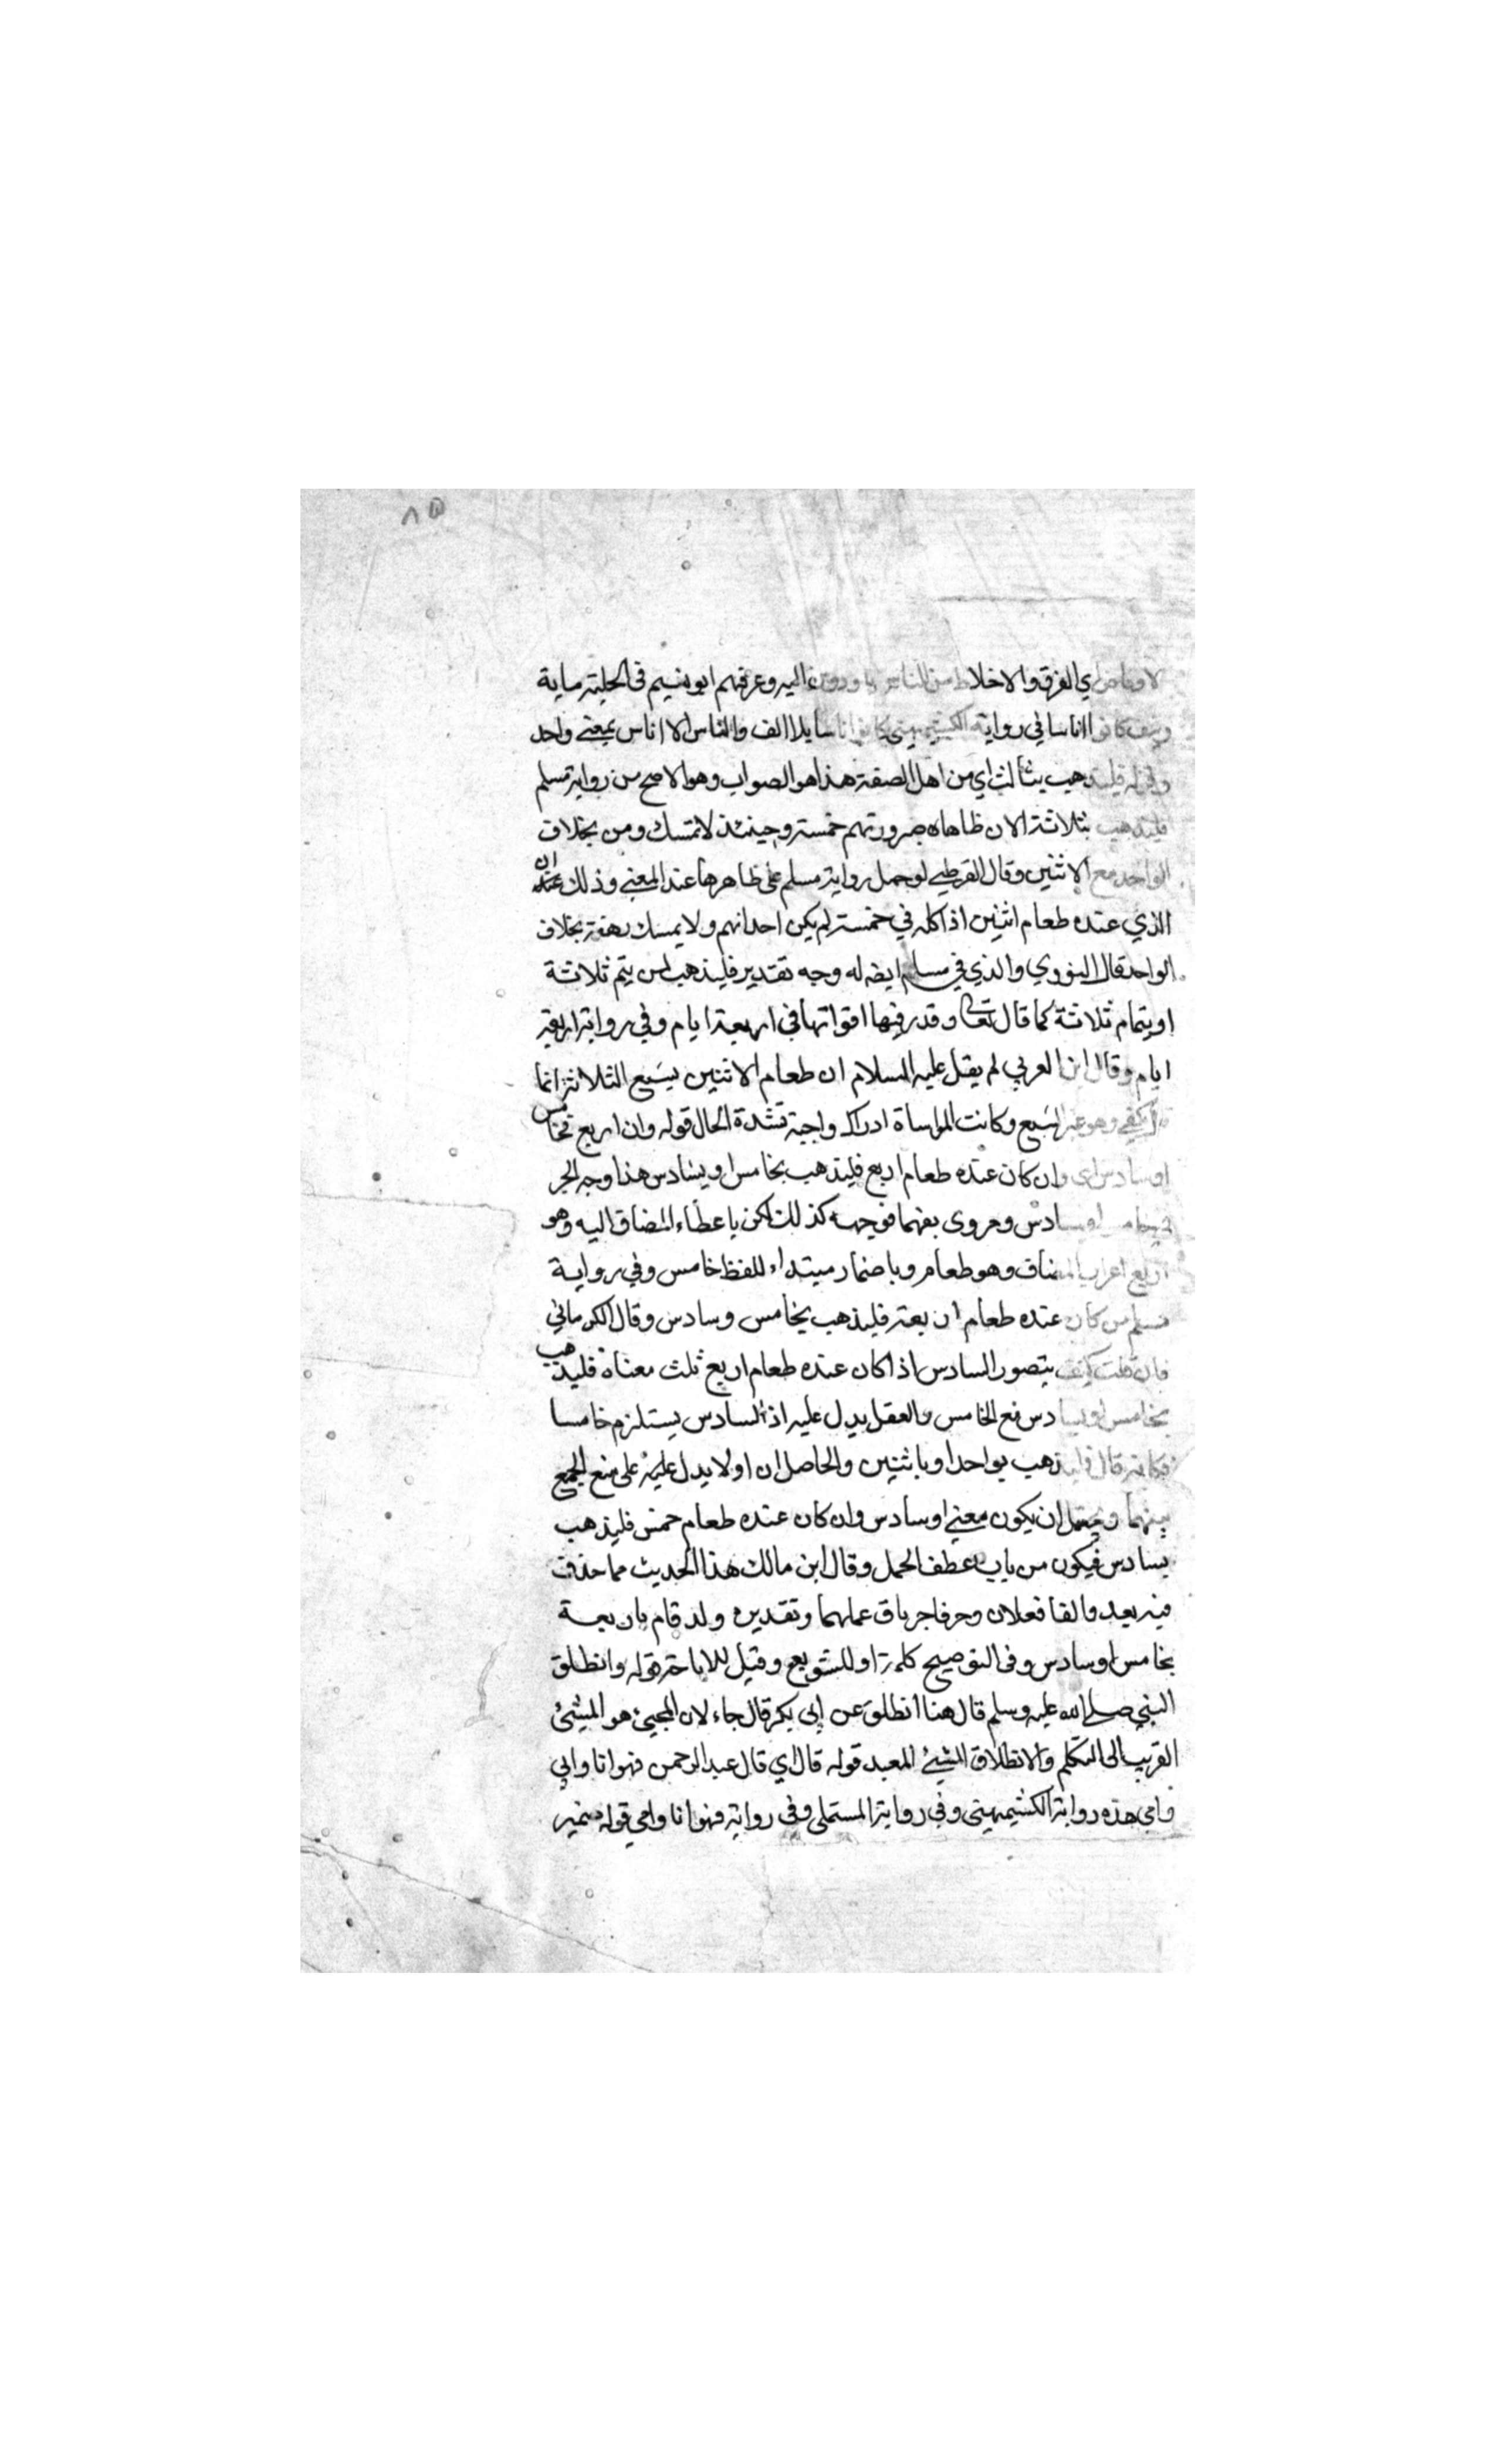 ٨٥
الاوفاض اي الفرق والاخلاط من الناس اليه وعرفهم ابو نعيم في الحلية ماية
ونيف كانوا اناسا في رواية الكشميهني كانوا ناسا بلا الف والناس الاناس بمعني واحد
وقوله فليذهب بثالث اي من اهل الصفة هذا هو الصواب وهو الاصح من رواية مسلم
فليذهب بثلاثة لان ظاهاه صيرورتهم خمسة وحينئذ لا تمسك ومن بخلاف
الواحد مع الاثنين وقال القرطبي لو حمل رواية مسلم علي ظاهرها عند المعني وذلك ان
الذي عنده طعام اثنين اذا كله في خمسة لم يكن احدانهم ولا يمسك رمقه بخلاف
الواحد قال النووي والذي في مسلم ايضه له وجه تقدير فليذهب لمن يتم ثلاثة
او بتمام ثلاثة كما قال تعالى وقدر فيها اقواتها في اربعة ايام وفي رواية اربعة
ايام وقال ابن العربي لم يقل عليه السلام ان طعام الاثنين يشبع الثلاثة انما
قال يكفي وهو غير الشبع وكانت المواساة اذ ذاك واجبة تشدة الحال قوله وان اربع فخامس
او سادس اي وان كان عنده طعام اربع فليذهب بخامس او بسادس هذا وجه الجر
في خامس او سادس ويروي بفهما فوجهه كذلك لكن باعطاء المضاف اليه وهو
اربع اعراب المضاف وهو طعام وباضمار مبتداء للفظ خامس وفي رواية
مسلم من كان عنده طعام اربعة فليذهب بخامس وسادس وقال الكرماني
فان قلت كيف يتصور السادس اذا كان عنده طعام اربع قلت معناه فليذهب
بخامس او بسادس مع الخامس والعقل يدل عليه اذ السادس يستلزم خامسا
فكانه قال فليذهب بواحد او باثنين والحاصل ان او لا يدل عليه على منع الجمع
بينهما ويحتمل ان يكون معني او سادس وان كان عنده طعام خمس فليذهب
بسادس فيكون من باب عطف الجمل وقال ابن مالك هذا الحديث مما حذف
فيه بعد والفا فعلان وحرفا جر باق عملهما وتقديره ولد قام باربعة
بخامس او سادس وفي التوضيح كلمة او للتنويع وقيل للاباحة قوله وانطلق
النبي صلي الله عليه وسلم قال هنا انطلق عن ابي بكر قال جاء لان المجيئ هو المشيئ
القريب الى المتكلم والانطلاق المشيئ البعيد قوله قال اي قال عبد الرحمن فهو انا وابي
وامي هذه رواية الكشيميهيني وفي رواية المستملي وفي رواية فهو انا وامي قوله بين